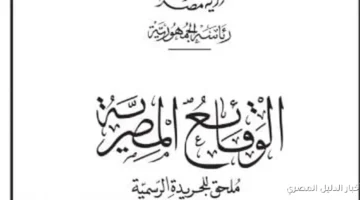 رئاسة الجمهورية
الوقائع المصرية
ملحق للجريدة الرسمية
الدليل المصري